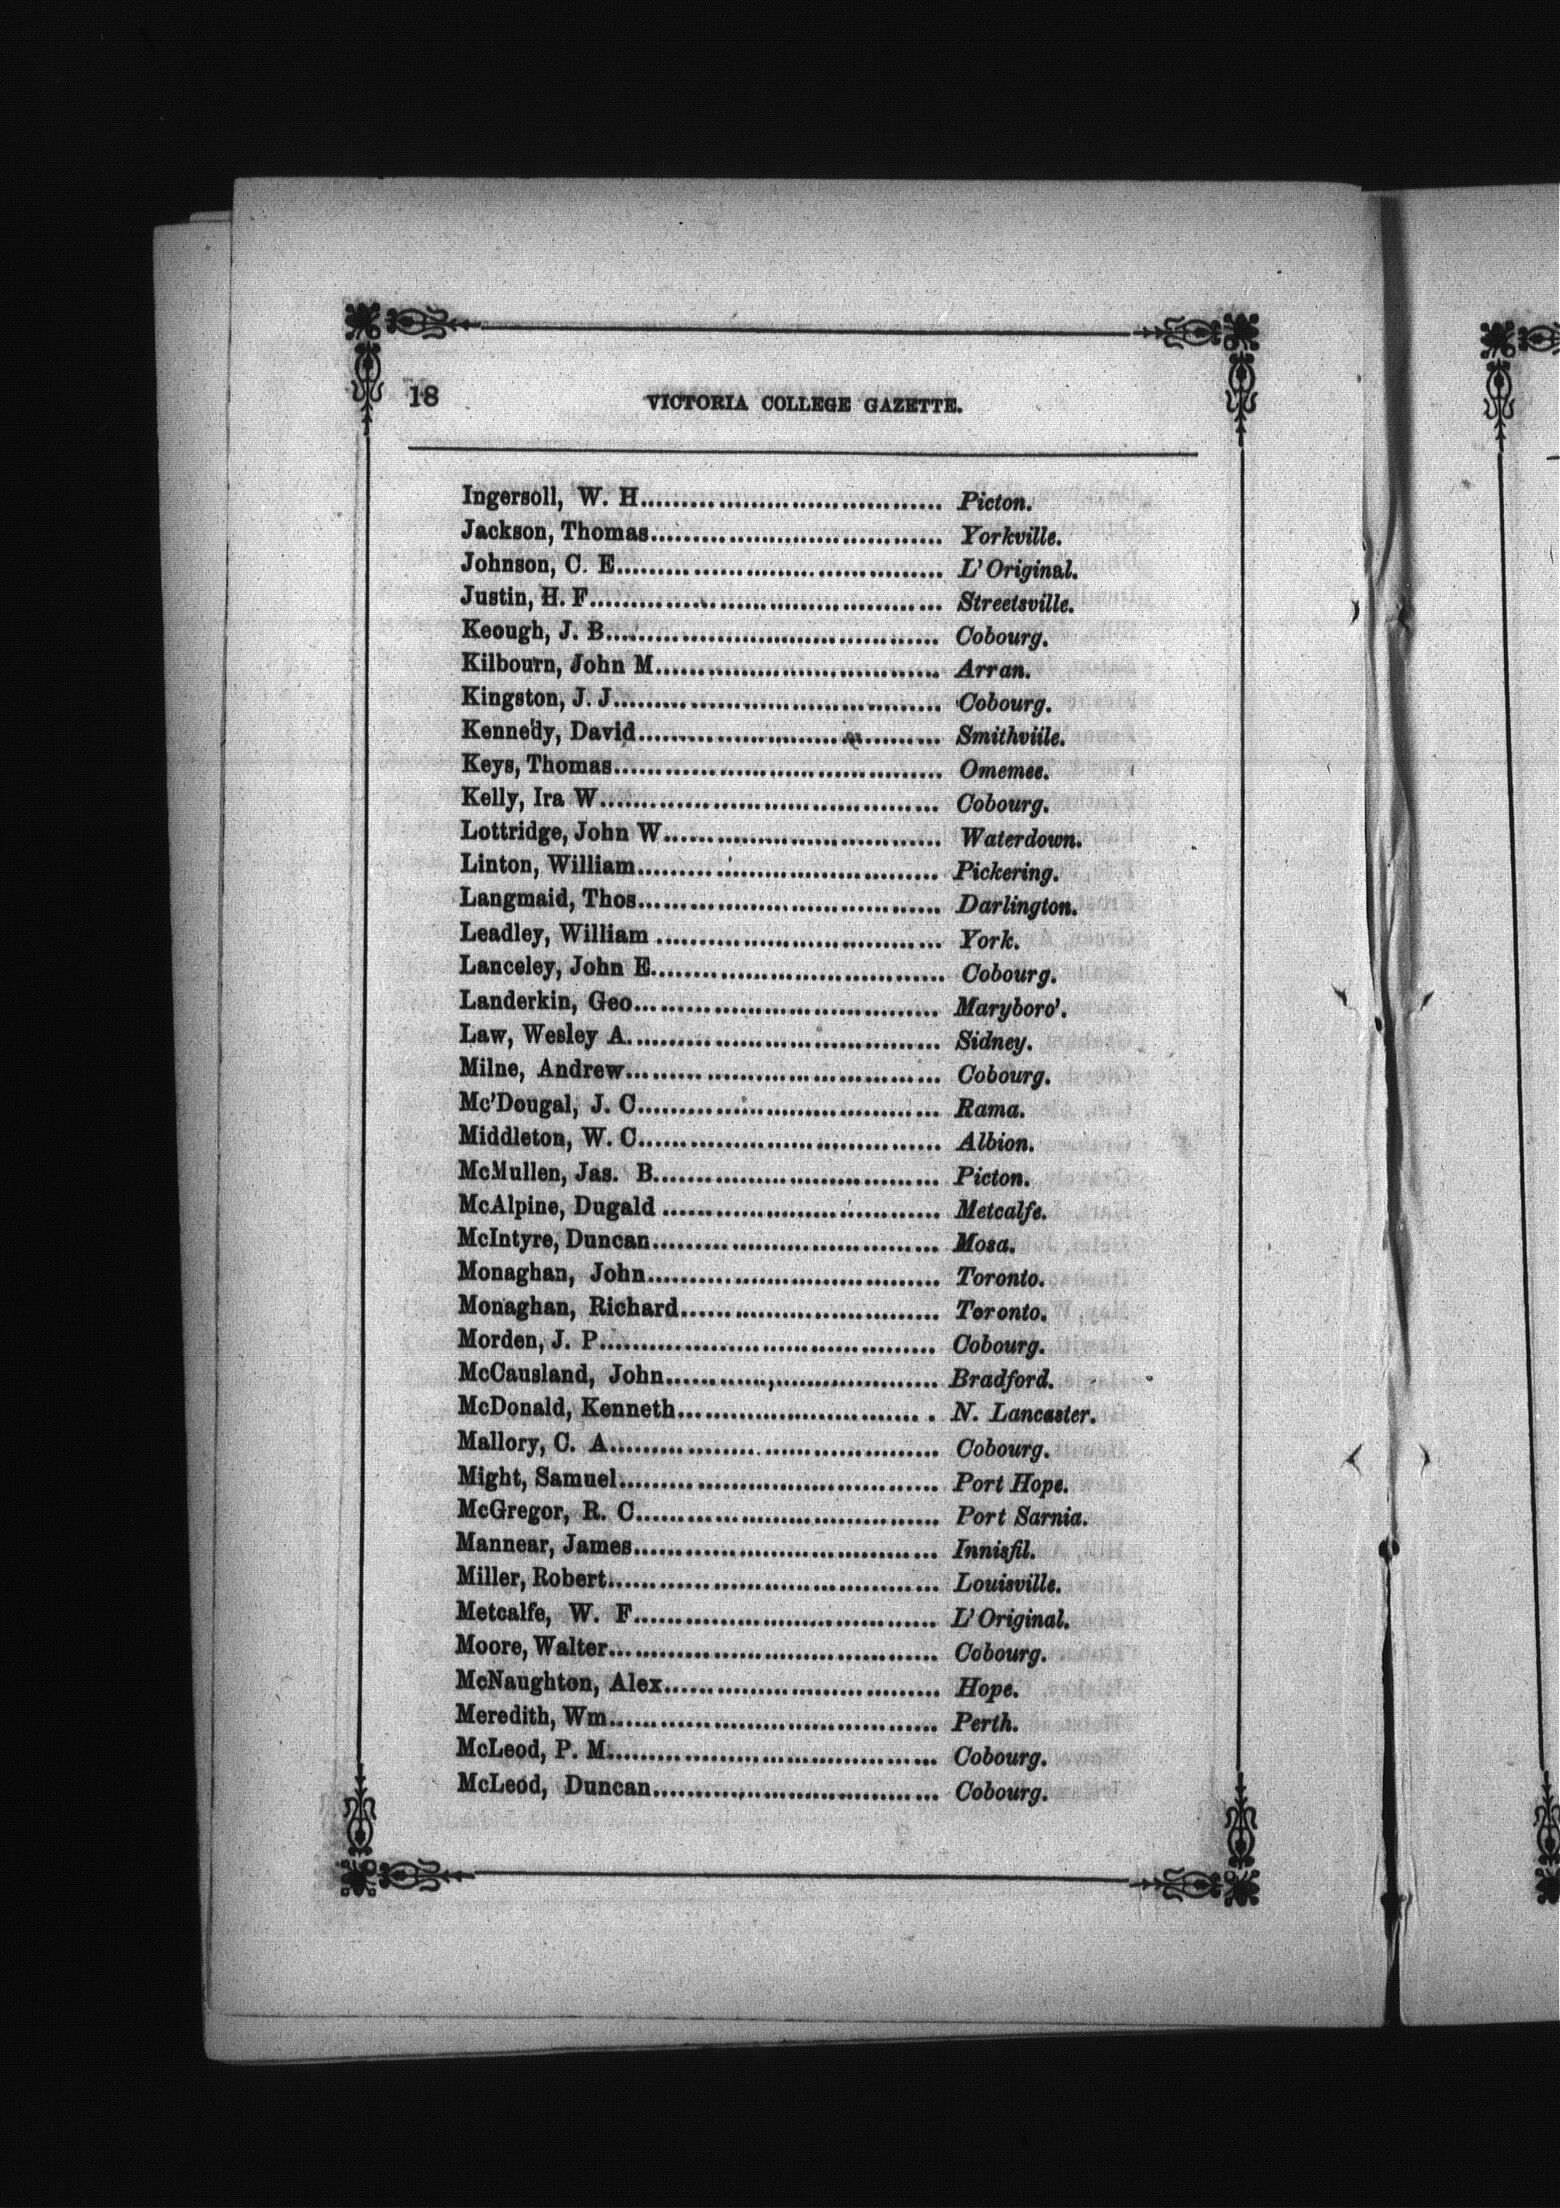 18
VICTORIA COLLEGE GAZETTE.
Ingersoll, W. H.................................... Picton.
Jackson, Thomas.................................. Yorkville.
Johnson, C. E...................................... L'Original.
Justin, H. F......................................... Streetsville.
Keough, J. B....................................... Cobourg.
Kilbourn, John M................................. Arran.
Kingston, J. J...................................... Cobourg.
Kennedy, David................................... Smithviile.
Keys, Thomas...................................... Omemee.
Kelly, Ira W........................................ Cobourg.
Lottridge, John W................................ Waterdown.
Linton, William................................... Pickering.
Langmaid, Thos................................... Darlington.
Leadley, William ................................. York.
Lanceley, John E.................................. Cobourg.
Landerkin, Geo.................................... Maryboro'.
Law, Wesley A.................................... Sidney.
Milne, Andrew..................................... Cobourg.
Mc'Dougal, J. C................................... Rama.
Middleton, W. C................................... Albion.
McMullen, Jas. B................................. Picton.
McAlpine, Dugald ................................ Metcalfe.
McIntyre, Duncan................................. Mosa.
Monaghan, John.................................. Toronto.
Monaghan, Richard.............................. Toronto.
Morden, J. P....................................... Cobourg.
McCausland, John................................ Bradford.
McDonald, Kenneth.............................. N. Lancaster.
Mallory, C. A...................................... Cobourg.
Might, Samuel..................................... Port Hope.
McGregor, R. C................................... Port Sarnia.
Mannear, James................................... Innisfil.
Miller, Robert...................................... Louisville.
Metcalfe, W. F.................................... L'Original.
Moore, Walter...................................... Cobourg.
McNaughton, Alex................................ Hope.
Meredith, Wm...................................... Perth.
McLeod, P. M...................................... Cobourg.
McLeod, Duncan................................. Cobourg.